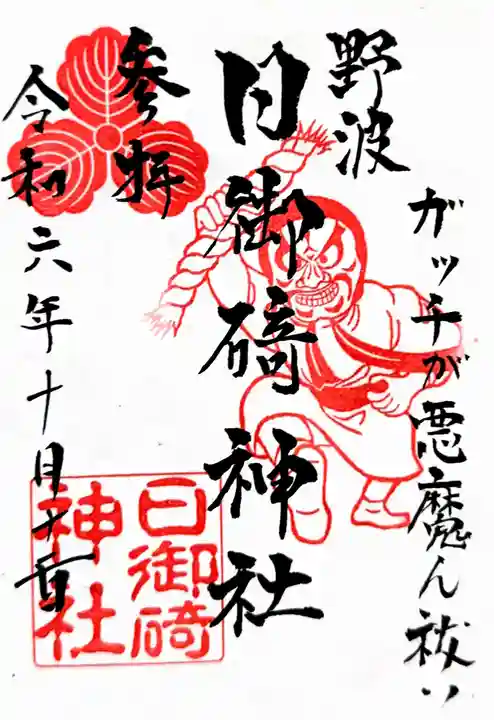 ガッチが悪魔ん祓い
野波
日御碕神社
参拝
令和六年十月
日御碕
神社